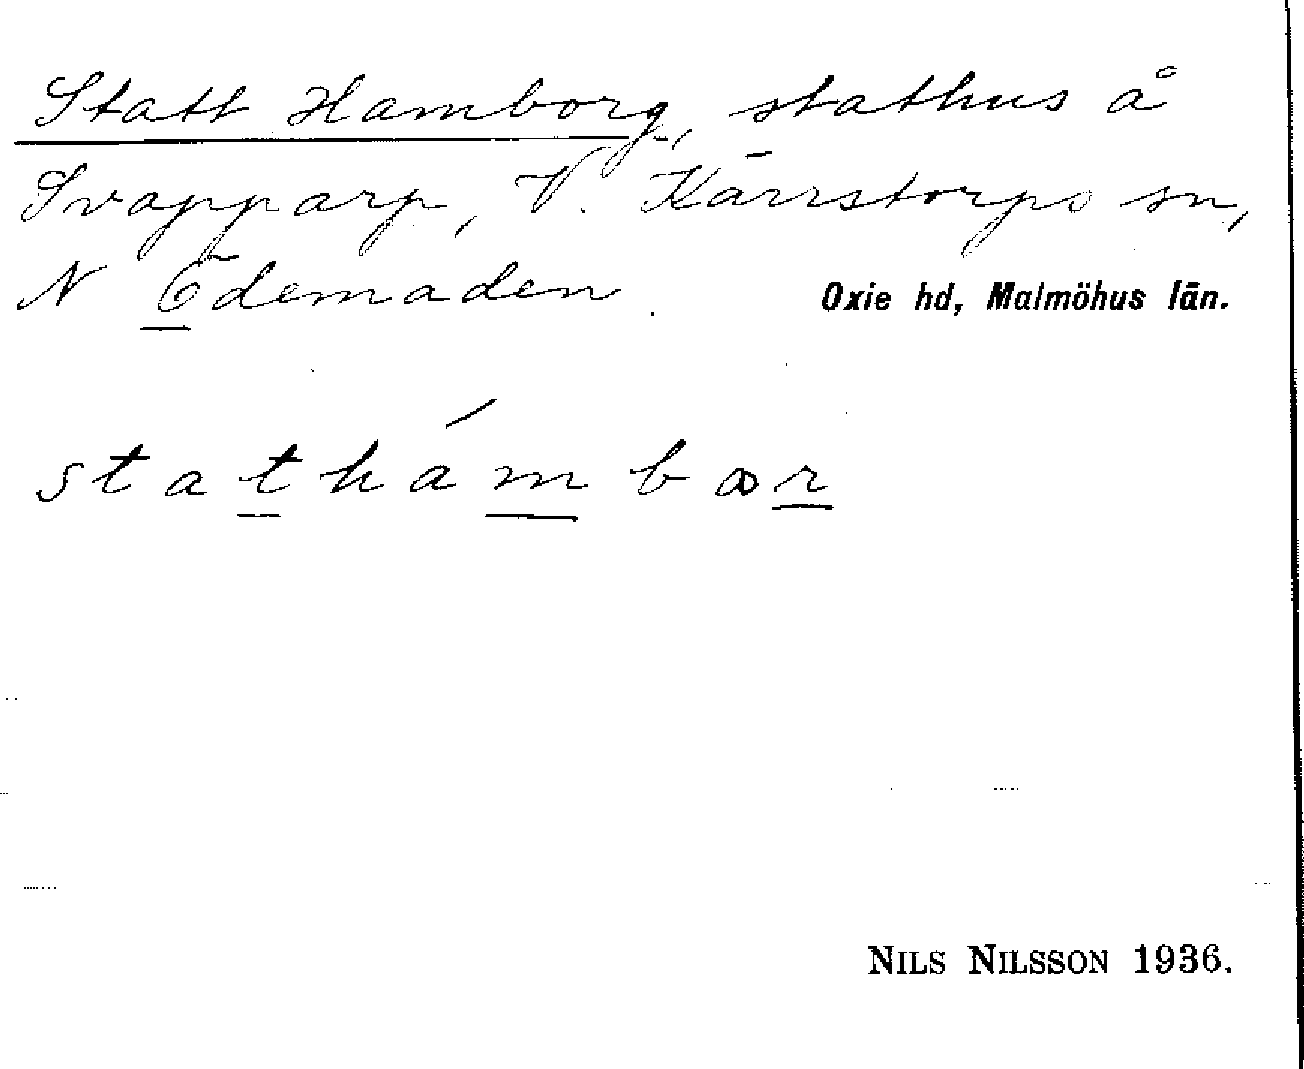 Statt Hamborg, stathus å
Svapparp, V. Kärrstorps sn,
N Ödemaden Oxie hd, Malmöhus län.
stathámbꝏr
NILS NILSSON 1936.